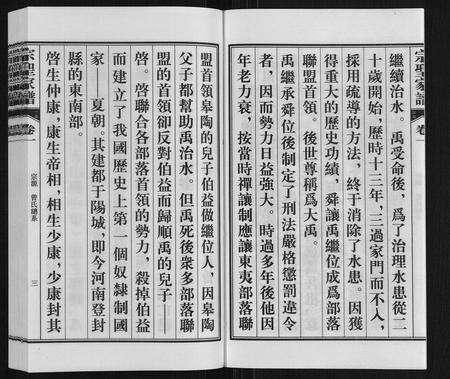 繼續治水。禹受命後，爲了治理水患從二
十歲開始，歷時十三年，三過家門而不入，
採用疏導的方法，終于消除了水患。因獲
得重大的歷史功績，舜讓禹繼位成爲部落
聯盟首領。後世尊稱爲大禹。
禹繼承舜位後制定了刑法嚴格懲罰違令
者，因而勢力日益強大。時過多年後他因
年老力衰，按當時禪讓制應讓東夷部落聯
盟首領皋陶的兒子伯益做繼位人，因皋陶
父子都幫助禹治水。但禹死後衆多部落聯
盟的首領卻反對伯益而歸順禹的兒子——
啓。啓聯合各部落首領的勢力，殺掉伯益
而建立了我國歷史上第一個奴隸制國
家——夏朝。其建都于陽城，即今河南登封
縣的東南部。
啓生仲康，康生帝相，相生少康，少康封其
宗源 曾氏總系
三
宗聖家譜
卷